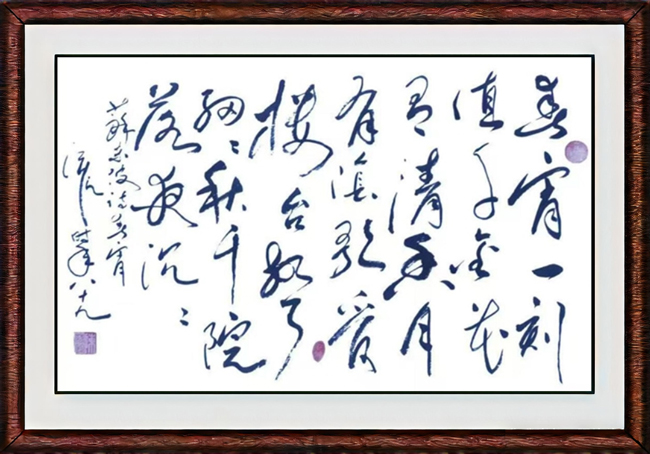 春宵一刻
值千金花
有清香月
有陰歌管
楼台声
细〃秋千院
落夜沉〃
蘇東坡诗春宵
時年八十九